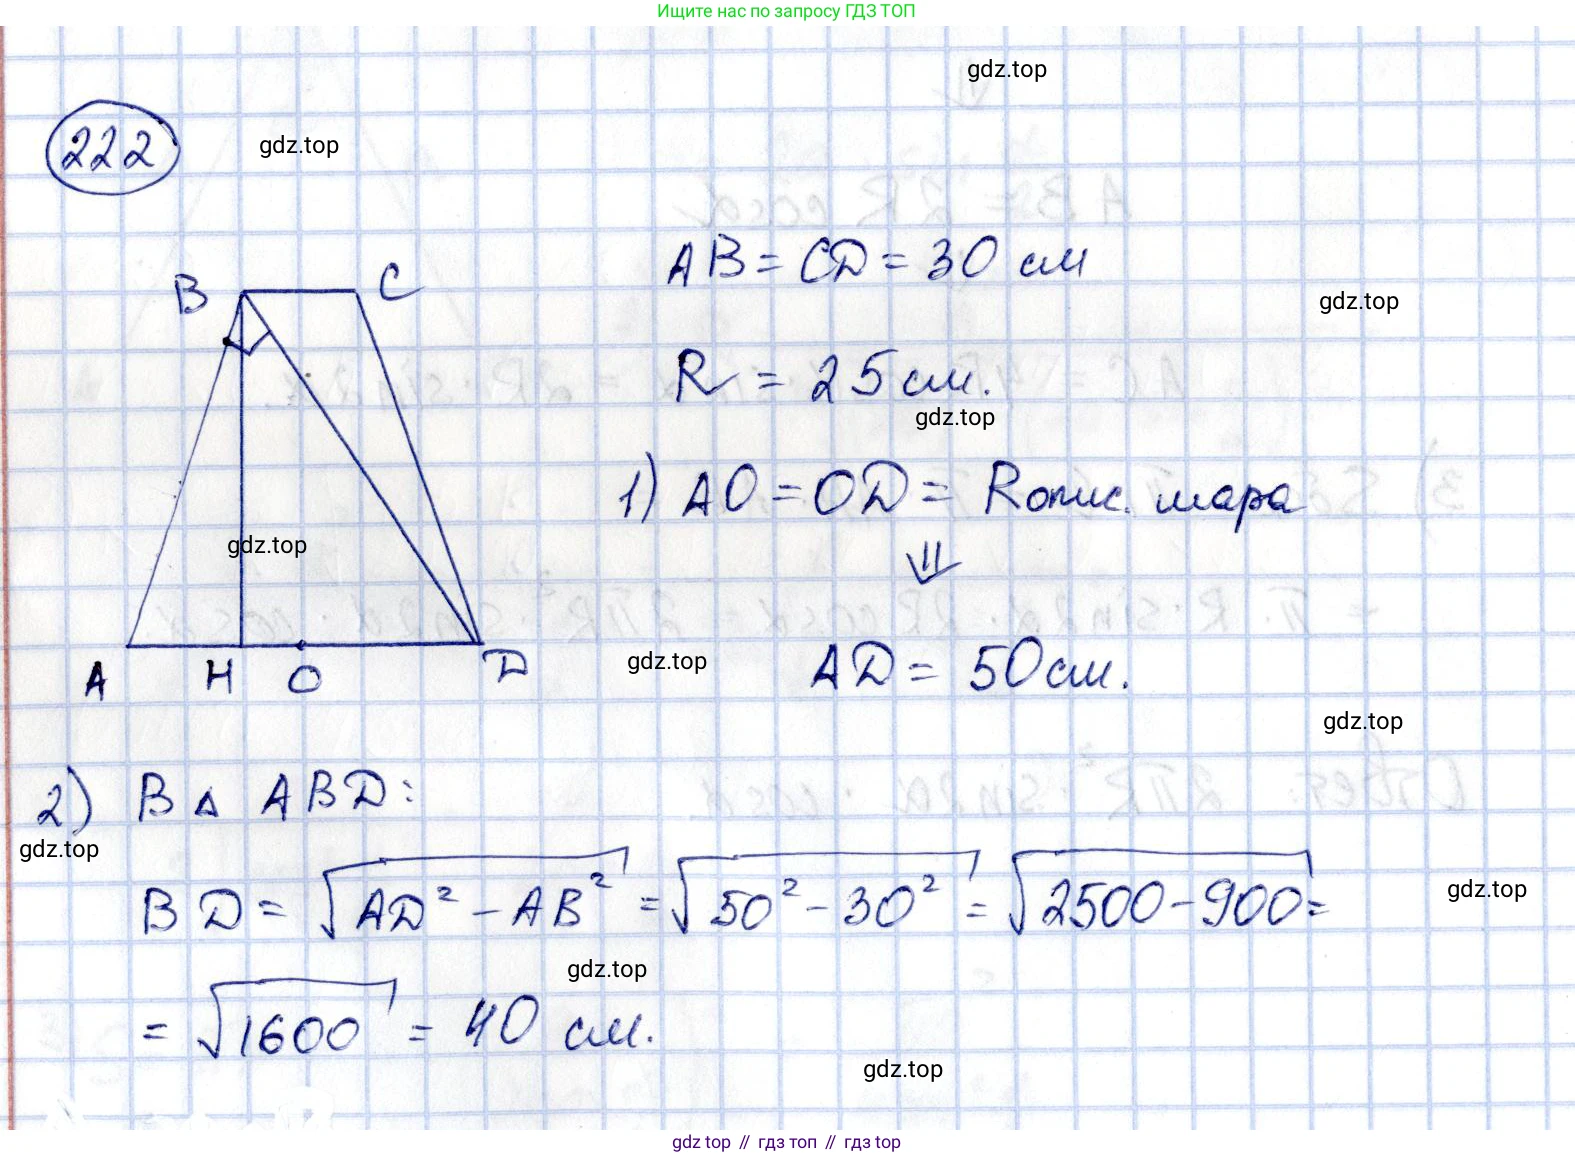 Ищите нас по запросу ГДЗ ТОП
gdz.top
222
gdz.top
AB = CD = 30 см
B C
gdz.top
R = 25 см.
gdz.top
1) AO = OD = Rопис. шара
⇓
gdz.top
A H O D
gdz.top
AD = 50 см.
gdz.top
2) В △ ABD:
gdz.top
BD = √(AD² - AB²) = √(50² - 30²) = √(2500 - 900) =
gdz.top
gdz.top
= √1600 = 40 см.
gdz.top
gdz top // гдз топ // гдз top